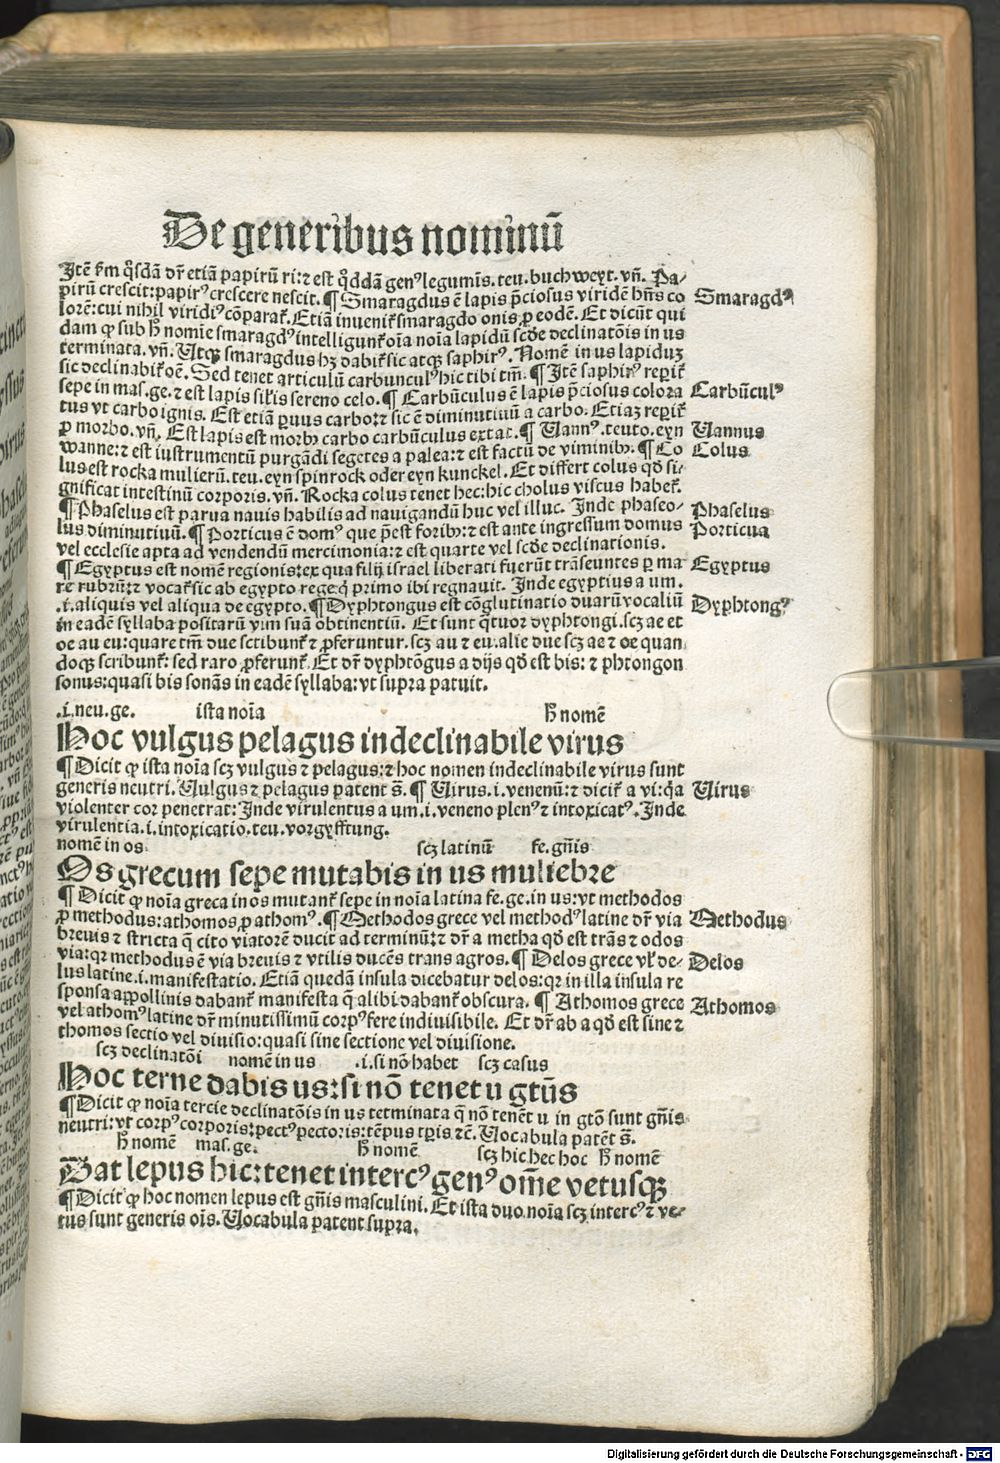 De generibus nominū
Itē ẜm q̊sdā dr̄ etiā papirū ri: ⁊ est q̊ddā gen⁹ legumīs. teu. buchweyt. vñ. Pa-
pirū crescit: papir⁹ crescere nescit. ¶ Smaragdus ē lapis p̄ciosus viridē hn̄s co
Smaragd⁹
lorē: cui nihil viridi⁹ cōparat᷑. Etiā inuenit᷑ smaragdo onis ꝓ eodē. Et dicūt qui
dam ꝙ sub h̄ nomīe smaragd⁹ intelligunt᷑ oīa noīa lapidū scd̓e declinatōis in us
terminata. vñ. Utq̨ smaragdus hꝫ dabit᷑ sic atq̨ saphir⁹. Nomē in us lapiduꝫ
sic declinabit᷑ oē. Sed tenet articulū carbuncul⁹ hic tibi tm̄. ¶ Itē saphir⁹ reꝑit᷑
sepe in mas. ge. ⁊ est lapis sil̓is sereno celo. ¶ Carbūculus ē lapis p̄ciosus colora
Carbūcul⁹
tus vt carbo ignis. Est etiā ꝑuus carbo: ⁊ sic ē diminutiuū a carbo. Etiaꝫ reꝑit᷑
ꝓ morbo. vñ. Est lapis est morbꝰ carbo carbūculus extat. ¶ Uann⁹. teuto. eyn
Uannus
wanne: ⁊ est iustrumentū purgādi segetes a palea: ⁊ est factū de viminibꝫ. ¶ Co
Colus
lus est rocka mulierū. teu. eyn spinrock oder eyn kunckel. Et differt colus qd̓ si-
gnificat intestinū corporis. vñ. Rocka colus tenet hec: hic cholus viscus habet᷑.
¶ Phaselus est parua nauis habilis ad nauigandū huc vel illuc. Inde phaseo-
Phaselus
lus diminutiuū. ¶ Porticus ē dom⁹ que p̄est foribꝫ: ⁊ est ante ingressum domus
Porticus
vel ecclesie apta ad vendendū mercimonia: ⁊ est quarte vel scd̓e declinationis.
¶ Egyptus est nomē regionis: ex qua filij israel liberati fuerūt trāseuntes ꝑ ma-
Egyptus
re rubrū: ⁊ vocat᷑ sic ab egypto rege: q̇ primo ibi regnauit. Inde egyptius a um.
.i. aliquis vel aliqua de egypto. ¶ Dyphtongus est cōglutinatio duarū vocaliū
Dyphtong⁹
in eadē syllaba positarū vim suā obtinentiū. Et sunt q̇tuor dyphtongi. scꝫ ae et
oe au eu: quare tm̄ due scribunt᷑ ⁊ ꝓferuntur. scꝫ au ⁊ eu. alie due scꝫ ae ⁊ oe quan
doq̨ scribunt᷑: sed raro ꝓferunt᷑. Et dr̄ dyphtōgus a dijs qd̓ est bis: ⁊ phtongon
sonus: quasi bis sonās in eadē syllaba: vt supra patuit.
.i. neu. ge. ista noīa h̄ nomē
Hoc vulgus pelagus indeclinabile virus
¶ Dicit ꝙ ista noīa scꝫ vulgus ⁊ pelagus: ⁊ hoc nomen indeclinabile virus sunt
generis neutri. Uulgus ⁊ pelagus patent s̄. ¶ Uirus .i. venenū: ⁊ dicit᷑ a vi: q̇a
Uirus
violenter cor penetrat: Inde virulentus a um .i. veneno plen⁹ ⁊ intoxicat⁹. Inde
virulentia .i. intoxicatio. teu. vorgyfftung.
nomē in os scꝫ latinū fe. gn̄is
Os grecum sepe mutabis in us muliebre
¶ Dicit ꝙ noīa greca in os mutant᷑ sepe in noīa latina fe. ge. in us: vt methodos
ꝓ methodus: athomos ꝓ athom⁹. ¶ Methodos grece vel method⁹ latine dr̄ via
Methodus
breuis ⁊ stricta q̄ cito viatorē ducit ad terminū: ⁊ dr̄ a metha qd̓ est trās ⁊ odos
via: qꝛ methodus ē via breuis ⁊ vtilis ducēs trans agros. ¶ Delos grece vl̓ de-
Delos
lus latine .i. manifestatio. Etiā quedā insula dicebatur delos: qꝛ in illa insula re
sponsa appollinis dabant᷑ manifesta q̄ alibi dabant᷑ obscura. ¶ Athomos grece
Athomos
vel athom⁹ latine dr̄ minutissimū corp⁹ fere indiuisibile. Et dr̄ ab a qd̓ est sine ⁊
thomos sectio vel diuisio: quasi sine sectione vel diuisione.
scꝫ declinatōi nomē in us .i. si nō habet scꝫ casus
Hoc terne dabis us: si nō tenet u gtūs
¶ Dicit ꝙ noīa tercie declinatōis in us terminata q̄ nō tenēt u in gtō sunt gn̄is
neutri: vt corp⁹ corporis: pect⁹ pectoris: tēpus tꝑis ⁊c̄. Uocabula patēt s̄.
h̄ nomē mas. ge. h̄ nomē scꝫ hic hec hoc h̄ nomē
Dat lepus hic: tenet interc⁹ gen⁹ om̄e vetusq̨
¶ Dicit ꝙ hoc nomen lepus est gn̄is masculini. Et ista duo noīa scꝫ interc⁹ ⁊ ve-
tus sunt generis oīs. Uocabula patent supra.
Digitalisierung gefördert durch die Deutsche Forschungsgemeinschaft - DFG